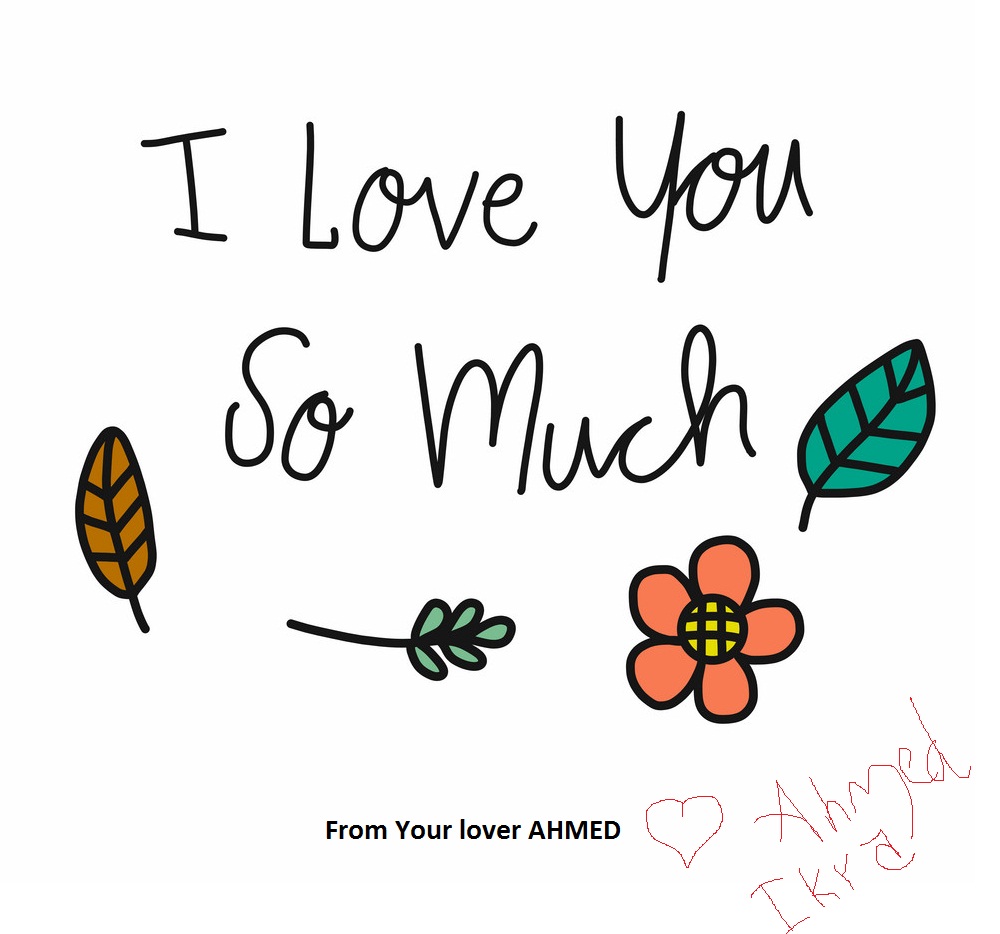 I Love You
So Much
From Your lover AHMED
Ahmed
Ikra